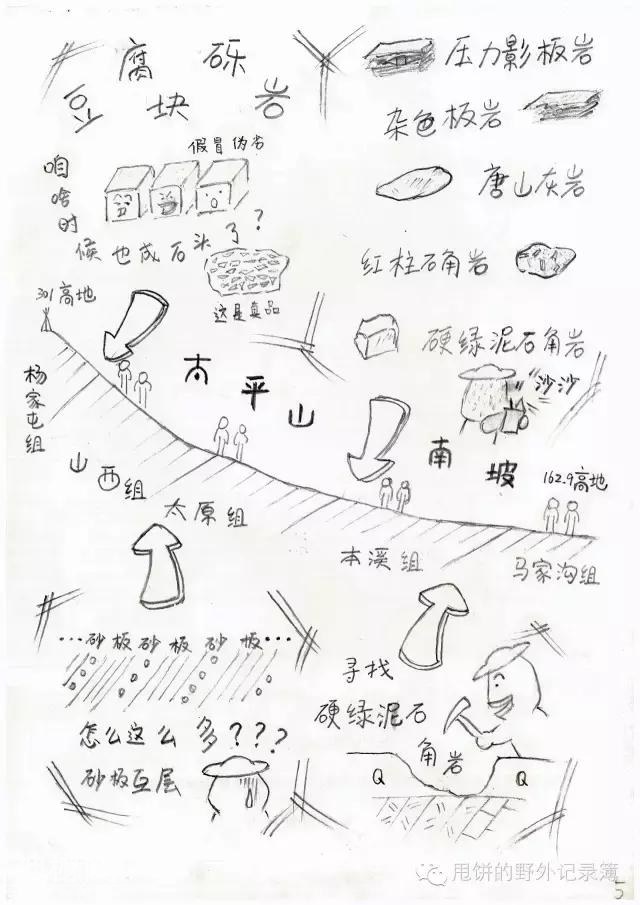 腐 砾
豆 块 岩
假冒伪劣
咱啥时
候也成石头了？
这是真品
压力影板岩
杂色板岩
唐山灰岩
红柱石角岩
硬绿泥石角岩
沙沙
301高地
太平山
南坡
162.9高地
杨家屯组
山西组
太原组
本溪组
马家沟组
…砂板砂板砂板…
怎么这么多？？？
砂板互层
寻找
硬绿泥石
角岩
Q
Q
甩饼的野外记录簿
5